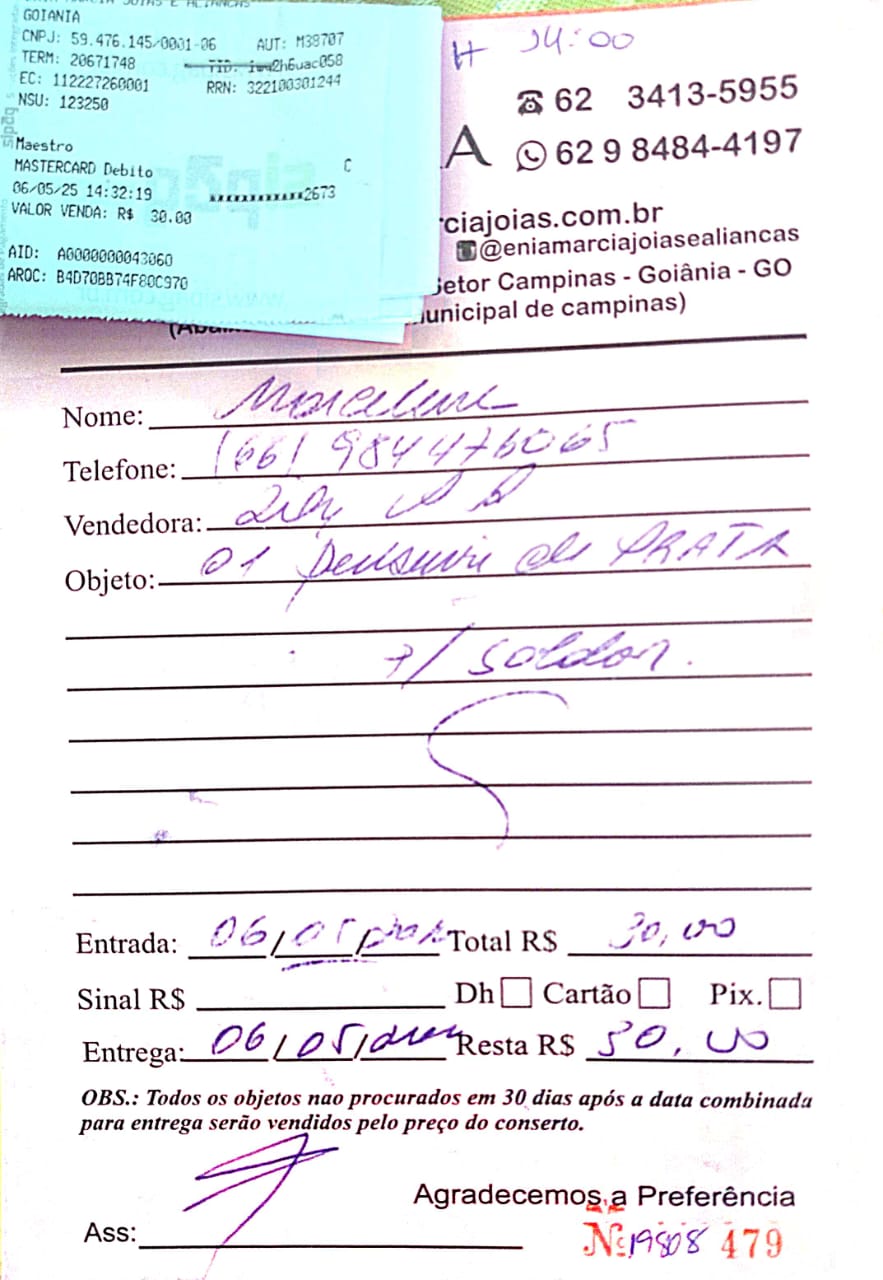 GOIANIA
CNPJ: 59.476.145/0001-06 AUT: M39707
TERM: 20671748
EC: 112227260001 RRN: 322100301244
NSU: 123250
Maestro
MASTERCARD Debito C
06/05/25 14:32:19 ************2673
VALOR VENDA: R$ 30.00
AID: A0000000043060
ARQC: B4D70BB74F80C970
H 14:00
62 3413-5955
A 62 9 8484-4197
ciajoias.com.br
@eniamarciajoiasealiancas
Setor Campinas - Goiânia - GO
unicipal de campinas)
Nome:
Telefone: (66) 984476065
Vendedora:
Objeto: 01 de PRATA
p/ soldar.
Entrada: 06/05/ Total R$ 30,00
Sinal R$ Dh Cartão Pix.
Entrega: 06/05/ Resta R$ 30,00
OBS.: Todos os objetos nao procurados em 30 dias após a data combinada
para entrega serão vendidos pelo preço do conserto.
Agradecemos a Preferência
Ass: Nº 19808 479